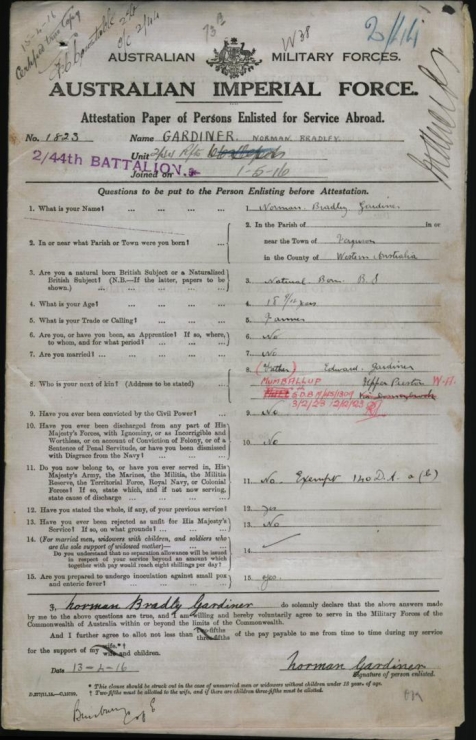 15-4-16
Certified True Copy
73A
W38
2/44
AUSTRALIAN MILITARY FORCES.
AUSTRALIAN IMPERIAL FORCE.
Attestation Paper of Persons Enlisted for Service Abroad.
No. 1823 Name GARDINER. NORMAN. BRADLEY.
Unit
2/44th BATTALION.
Joined on 1-5-16
Questions to be put to the Person Enlisting before Attestation.
1. What is your Name? ... 1. Norman Bradley Gardiner
2. In or near what Parish or Town were you born? ... 2. In the Parish of in or
near the Town of Ferguson
in the County of Western Australia
3. Are you a natural born British Subject or a Naturalized
British Subject? (N.B.—If the latter, papers to be
shown.) 3. Natural Born B S
4. What is your Age? ... 4. 18
5. What is your Trade or Calling? ... 5. Farmer
6. Are you, or have you been, an Apprentice? If so, where,
to whom, and for what period? ... 6. No
7. Are you married? ... 7. No
8. Who is your next of kin? (Address to be stated) ... 8. (Father) Edward Gardiner
MUMBALLUP Upper Preston W.A.
9. Have you ever been convicted by the Civil Power? ... 9. No
10. Have you ever been discharged from any part of His
Majesty's Forces, with Ignominy, or as Incorrigible and
Worthless, or on account of Conviction of Felony, or of a
Sentence of Penal Servitude, or have you been dismissed
with Disgrace from the Navy? 10. No
11. Do you now belong to, or have you ever served in, His
Majesty's Army, the Marines, the Militia, the Militia
Reserve, the Territorial Force, Royal Navy, or Colonial
Forces? If so, state which, and if not now serving,
state cause of discharge ... 11. No Exempt 140 D.A. a (E)
12. Have you stated the whole, if any, of your previous service? 12. yes
13. Have you ever been rejected as unfit for His Majesty's
Service? If so, on what grounds? ... 13. No
14. (For married men, widowers with children, and soldiers who
are the sole support of widowed mother)—
Do you understand that no separation allowance will be issued
in respect of your service beyond an amount which
together with pay would reach eight shillings per day? 14.
15. Are you prepared to undergo inoculation against small pox
and enteric fever? 15. yes.
I, Norman Bradly Gardiner do solemnly declare that the above answers made
by me to the above questions are true, and I am willing and hereby voluntarily agree to serve in the Military Forces of the
Commonwealth of Australia within or beyond the limits of the Commonwealth.
And I further agree to allot not less than two-fifths three-fifths of the pay payable to me from time to time during my service
for the support of my wife* wife and children.
Date 13-4-16 Norman Gardiner
Signature of person enlisted.
* This clause should be struck out in the case of unmarried men or widowers without children under 18 years of age.
† Two-fifths must be allotted to the wife, and if there are children three-fifths must be allotted.
Bunbury